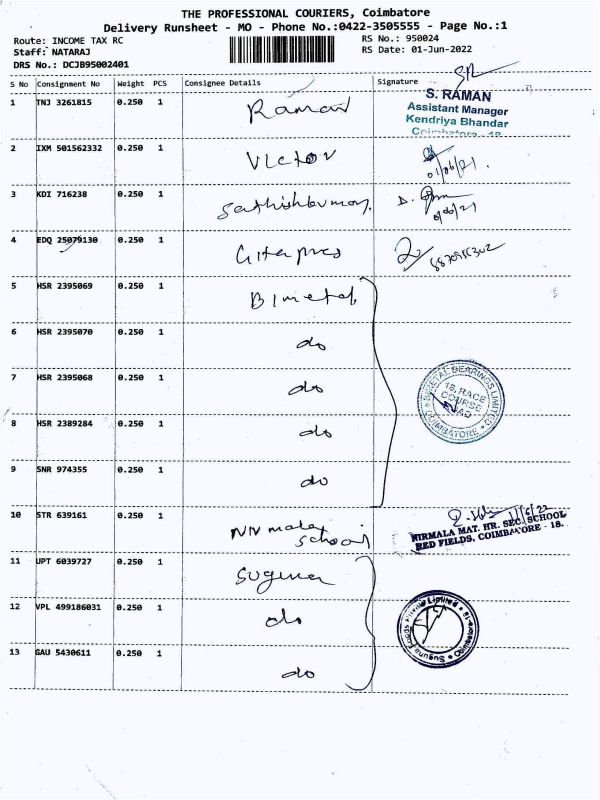 THE PROFESSIONAL COURIERS, Coimbatore
Delivery Runsheet - MO - Phone No.:0422-3505555 - Page No.:1
Route: INCOME TAX RC RS No.: 950024
Staff: NATARAJ RS Date: 01-Jun-2022
DRS No.: DCJB95002401
S No Consignment No Weight PCS Consignee Details Signature
1 TNJ 3261815 0.250 1 Raman
S. RAMAN
Assistant Manager
Kendriya Bhandar
Coimbatore - 18
2 IXM 501562332 0.250 1 Victor 01/06/21.
3 KDI 716238 0.250 1 Sathishkumar
4 EDQ 25079130 0.250 1
5 HSR 2395069 0.250 1 Bimetal
6 HSR 2395070 0.250 1 do
7 HSR 2395068 0.250 1 do
BIMETAL BEARINGS LIMITED
18, RACE
COURSE
ROAD
COIMBATORE
8 HSR 2389284 0.250 1 do
9 SNR 974355 0.250 1 do
10 STR 639161 0.250 1 Nirmala
School
NIRMALA MAT. HR. SEC. SCHOOL
RED FIELDS, COIMBATORE - 18.
11 UPT 6039727 0.250 1 Suguna
12 VPL 499186031 0.250 1 do
Suguna Foods Private Limited
13 GAU 5430611 0.250 1 do